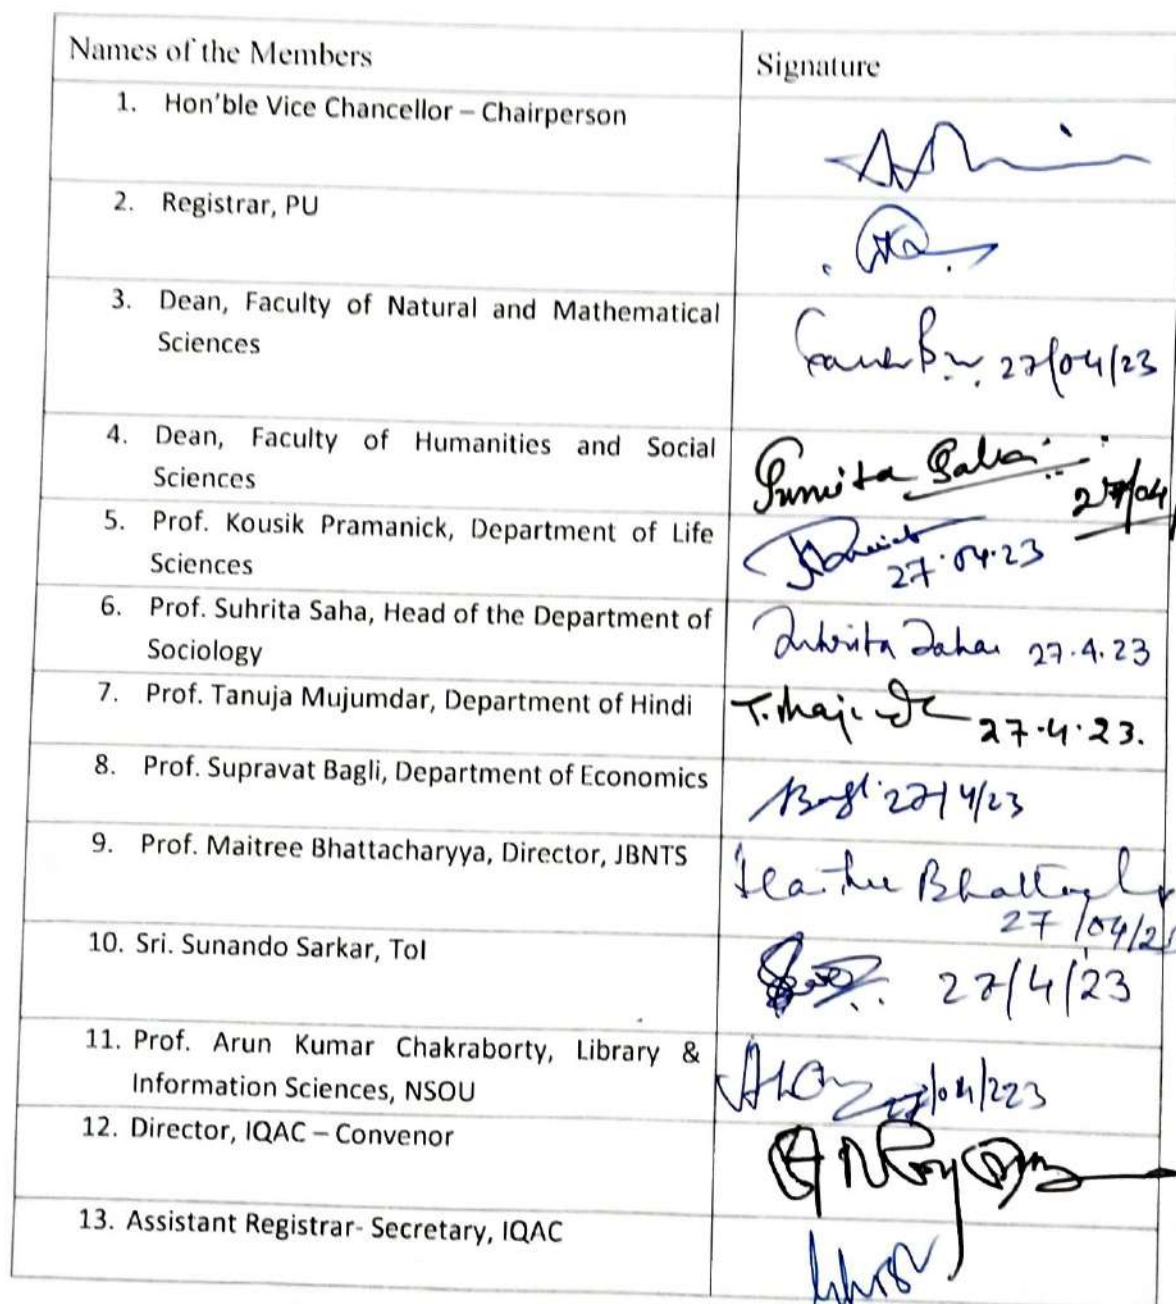 Names of the Members Signature
1. Hon'ble Vice Chancellor – Chairperson
2. Registrar, PU
3. Dean, Faculty of Natural and Mathematical
Sciences
27/04/23
4. Dean, Faculty of Humanities and Social
Sciences
27/04
5. Prof. Kousik Pramanick, Department of Life
Sciences
27.04.23
6. Prof. Suhrita Saha, Head of the Department of
Sociology
Suhrita Saha 27.4.23
7. Prof. Tanuja Mujumdar, Department of Hindi
27.4.23.
8. Prof. Supravat Bagli, Department of Economics
27/4/23
9. Prof. Maitree Bhattacharyya, Director, JBNTS
27/04/2
10. Sri. Sunando Sarkar, ToI
27/4/23
11. Prof. Arun Kumar Chakraborty, Library &
Information Sciences, NSOU
27/04/223
12. Director, IQAC – Convenor
13. Assistant Registrar- Secretary, IQAC